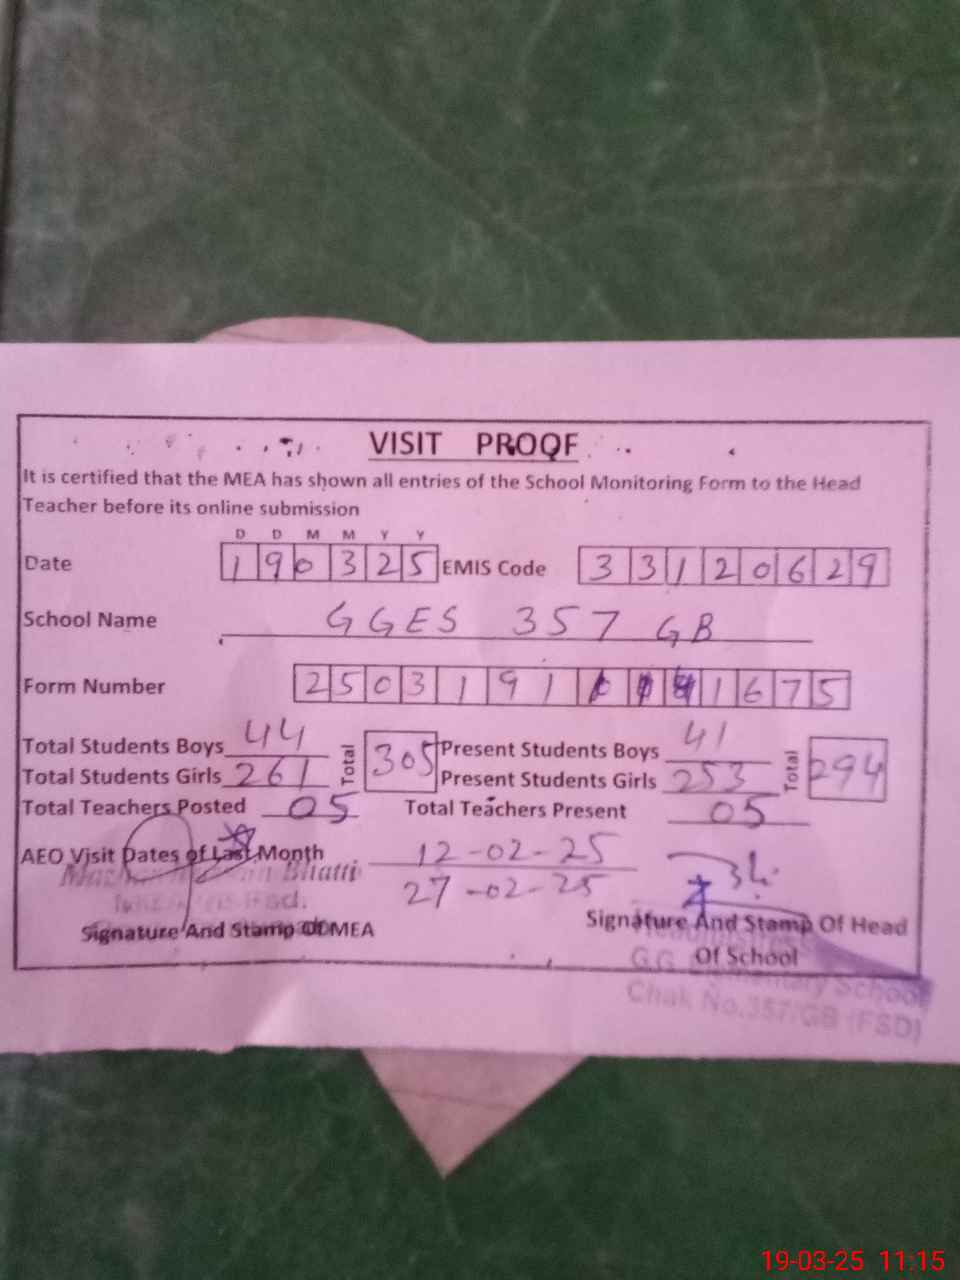 VISIT PROOF
It is certified that the MEA has shown all entries of the School Monitoring Form to the Head
Teacher before its online submission
D D M M Y Y
Date 190325 EMIS Code 33120629
School Name GGES 357 GB
Form Number 2503191 1675
Total Students Boys 44 Total 305 Present Students Boys 41 Total 294
Total Students Girls 261 Present Students Girls 253
Total Teachers Posted 05 Total Teachers Present 05
AEO Visit Dates of Last Month 12-02-25
27-02-25
Bhatti
Signature And Stamp Of MEA
Signature And Stamp Of Head
Of School
G.G. Elementary School
Chak No.357/GB (FSD)
19-03-25 11:15